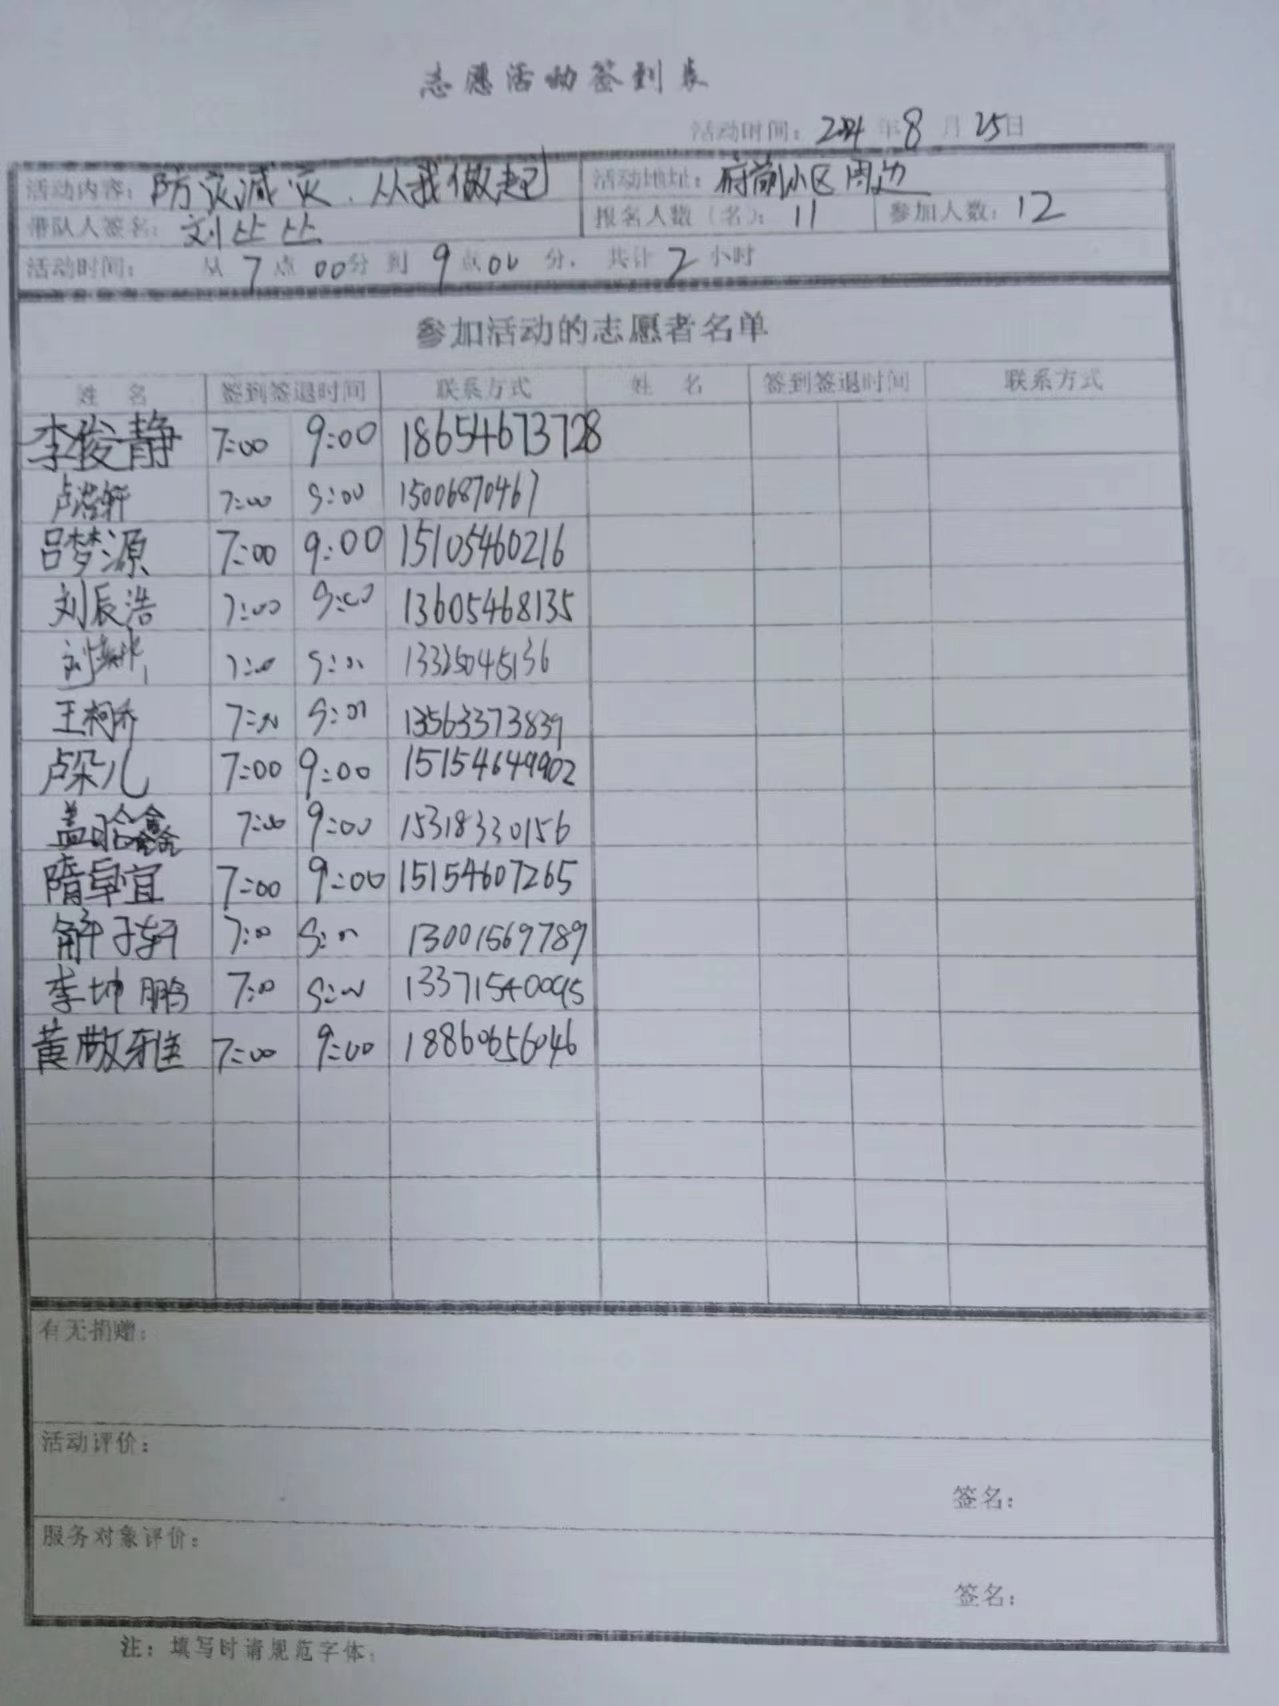 志愿活动签到表
活动时间：2024年8月25日
活动内容：防灾减灾、从我做起 活动地址：府前小区周边
带队人签名：刘丛丛 报名人数（名）：11 参加人数：12
活动时间： 从7点00分到9点00分，共计2小时
参加活动的志愿者名单
姓 名 签到签退时间 联系方式 姓 名 签到签退时间 联系方式
李俊静 7:00 9:00 18654673728
卢浩轩 7:00 9:00 15006870467
吕梦源 7:00 9:00 15105460216
刘辰浩 7:00 9:00 13605468135
刘 7:00 9:00 13325045136
王柯乔 7:00 9:00 13563373839
卢朵儿 7:00 9:00 15154649902
盖晗鑫 7:00 9:00 15318330156
隋卓宜 7:00 9:00 15154607265
解子轩 7:00 9:00 13001569789
李坤鹏 7:00 9:00 13371540095
黄敬雅 7:00 9:00 18860656046
有无捐赠：
活动评价：
签名：
服务对象评价：
签名：
注：填写时请规范字体；